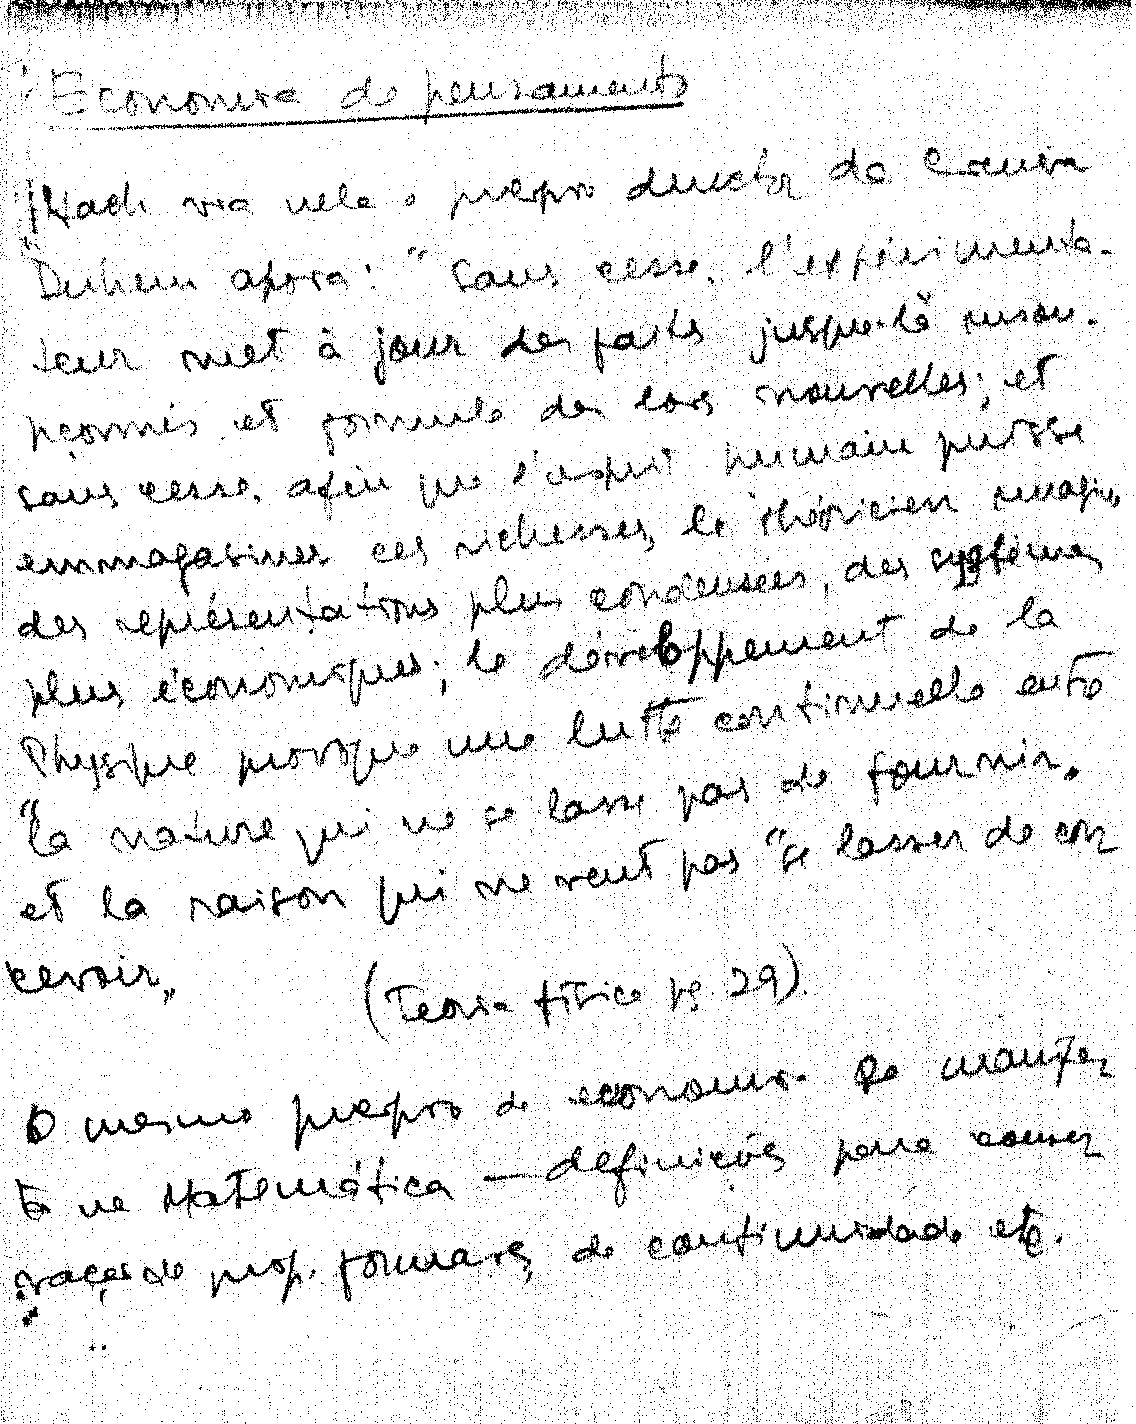 Economia de pensamento
Mach via nela o princípio director da Ciência
"Duhem afirma: "Sans cesse, l'expérimenta-
teur met à jour des faits jusque-là insou-
pçonnés et formule des lois nouvelles; et
sans cesse, afin que l'esprit humain puisse
emmagasiner ces richesses, le théoricien imagine
des représentations plus condensées, des systèmes
plus économiques; le développement de la
Physique provoque une lutte continuelle entre
"la nature qui ne se lasse pas de fournir"
et la raison qui ne veut pas "se lasser de con
cevoir"
(Teoria física pg 29)
O mesmo princípio de economia se manifes
ta na Matemática — definições para conser
vação de prop. formais, de continuidade etc.